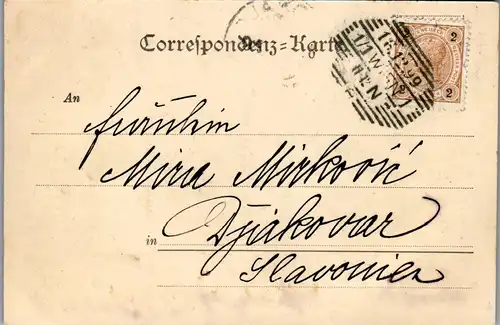 Correspondenz=Karte
An
Fräulein
Mira Mirković
in Djakovar
Slavonien
2 2